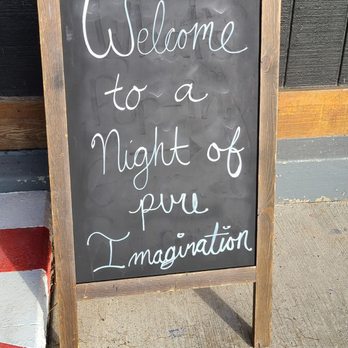 Welcome
to a
Night of
pure
Imagination